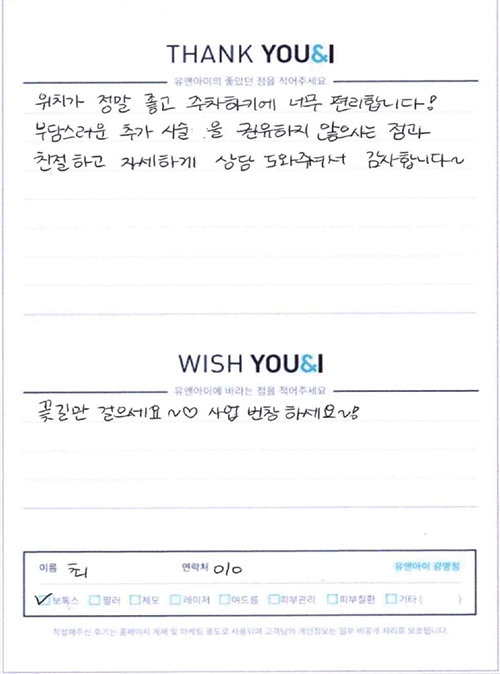 THANK YOU&I
유앤아이의 좋았던 점을 적어주세요
위치가 정말 좋고 주차하기에 너무 편리합니다!
부담스러운 추가 시술 을 권유하지 않으시는 점과
친절하고 자세하게 상담 도와주셔서 감사합니다~
WISH YOU&I
유앤아이에 바라는 점을 적어주세요
꽃길만 걸으세요~♡ 사업 번창 하세요~!
이름 최 연락처 010 유앤아이 광명점
보톡스 필러 제모 레이저 여드름 피부관리 피부질환 기타 ( )
작성해주신 후기는 홈페이지 게재 및 마케팅 용도로 사용되며 고객님의 개인정보는 일부 비공개 처리로 보호됩니다.